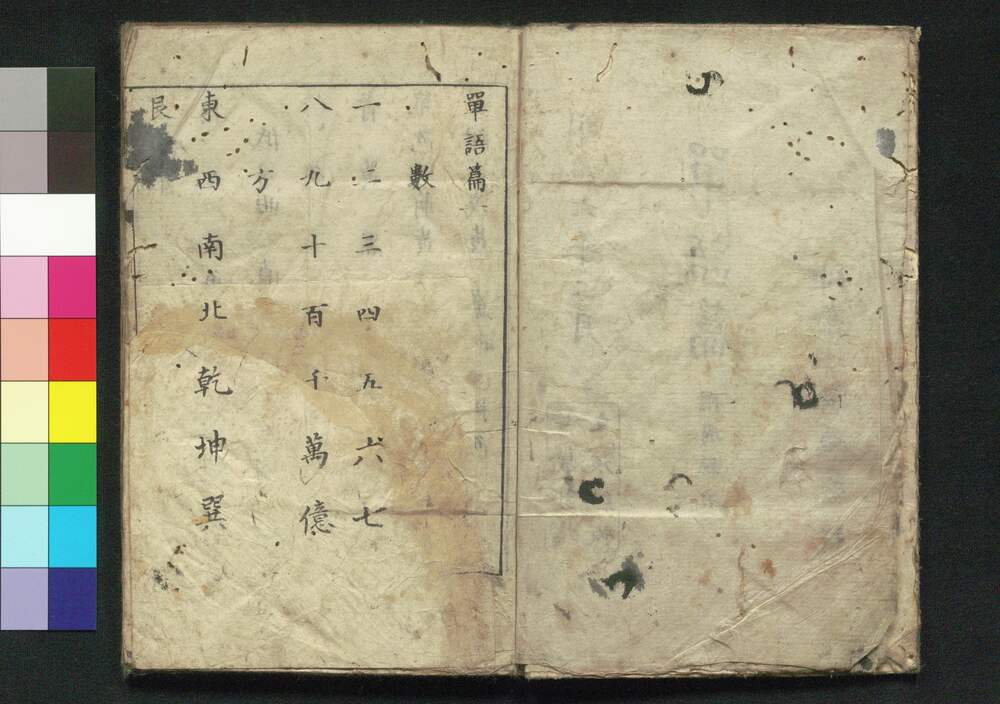 單語篇
數
一二三四五六七
八九十百千萬億
方
東西南北乾坤巽
艮